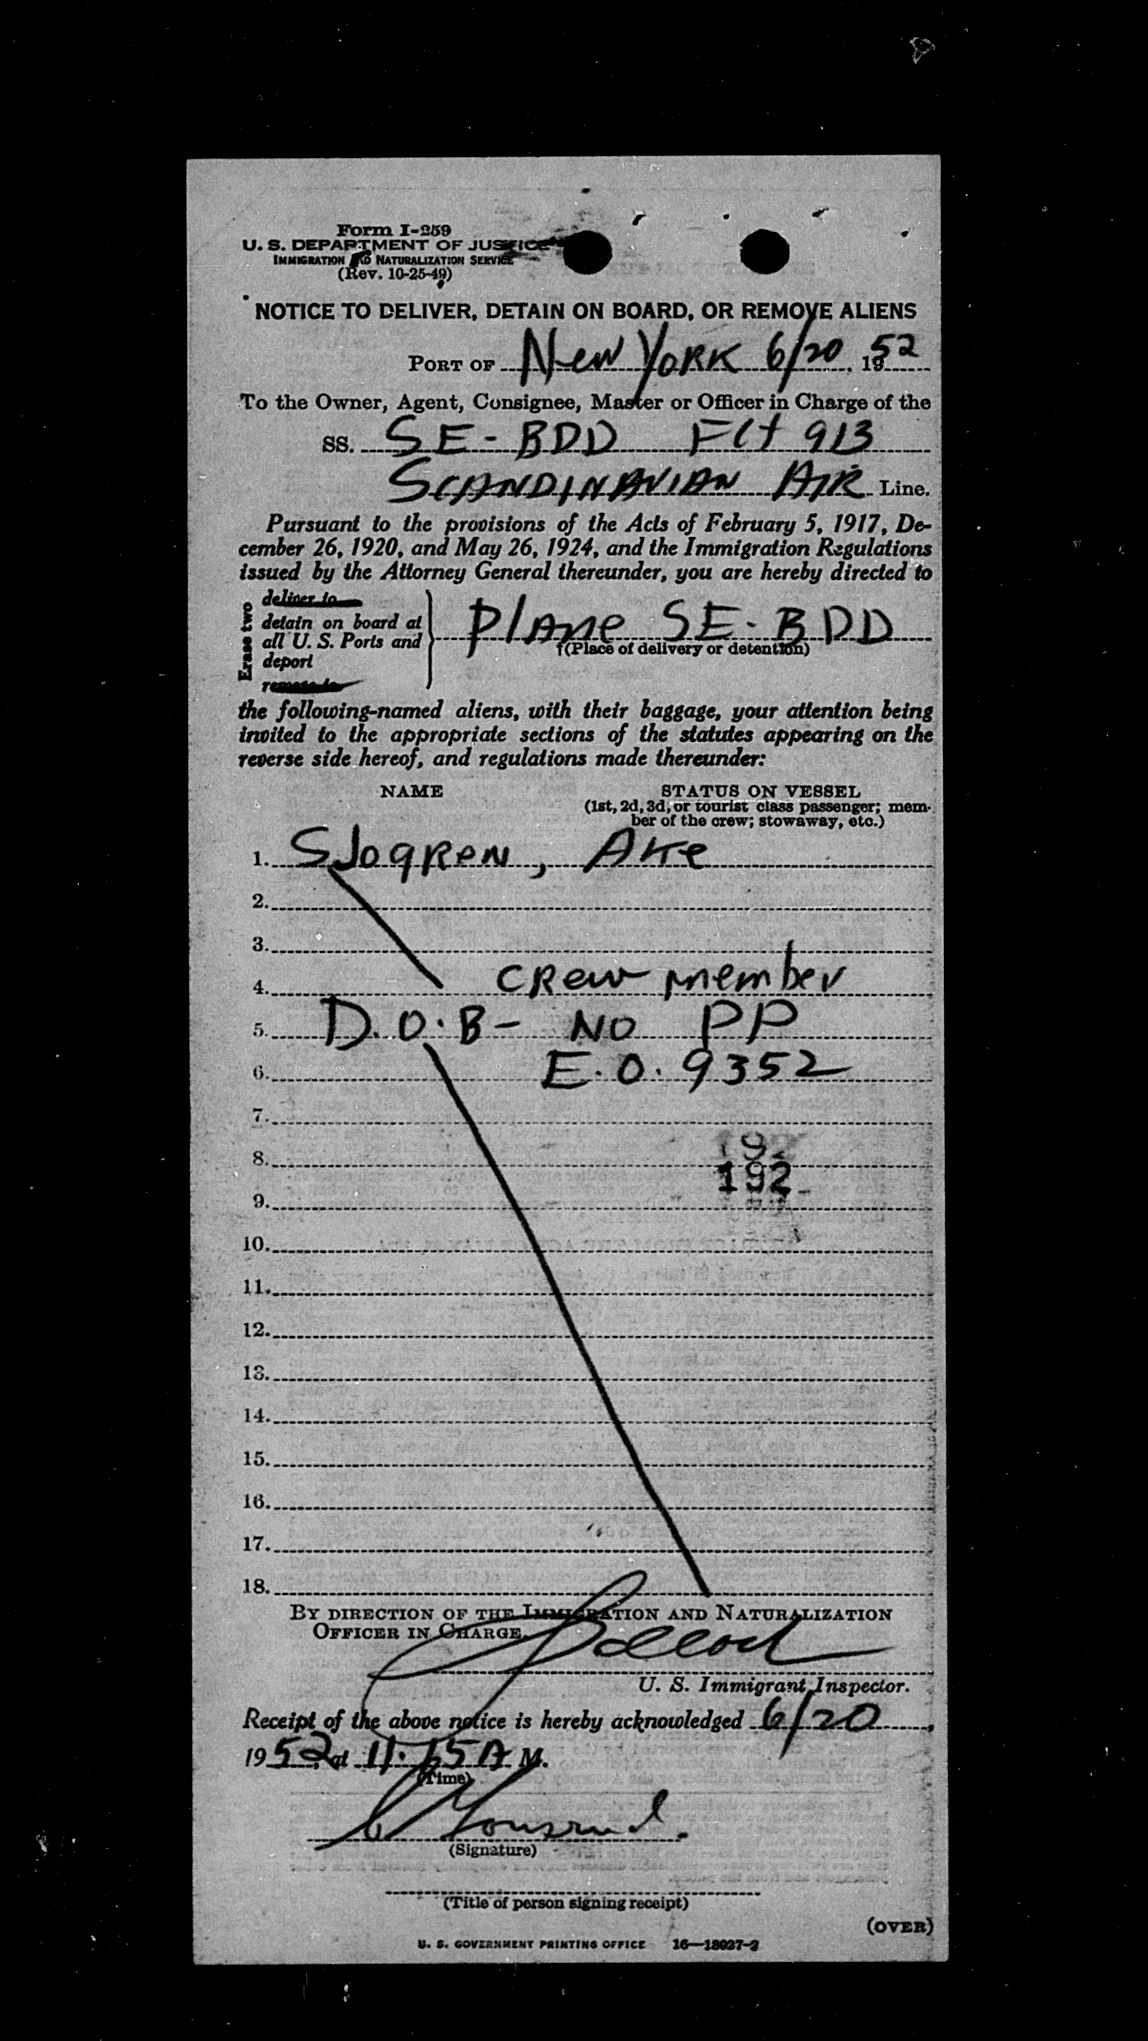 Form I-259
U. S. DEPARTMENT OF JUSTICE
IMMIGRATION AND NATURALIZATION SERVICE
(Rev. 10-25-49)
NOTICE TO DELIVER, DETAIN ON BOARD, OR REMOVE ALIENS
PORT OF New York 6/20, 1952
To the Owner, Agent, Consignee, Master or Officer in Charge of the
SS. SE-BDD Flt 913
SCANDINAVIAN AIR Line.
Pursuant to the provisions of the Acts of February 5, 1917, De-
cember 26, 1920, and May 26, 1924, and the Immigration Regulations
issued by the Attorney General thereunder, you are hereby directed to
Erase two
deliver to
detain on board at
all U. S. Ports and
deport
remove to
Plane SE-BDD
(Place of delivery or detention)
the following-named aliens, with their baggage, your attention being
invited to the appropriate sections of the statutes appearing on the
reverse side hereof, and regulations made thereunder:
NAME STATUS ON VESSEL
(1st, 2d, 3d, or tourist class passenger; mem-
ber of the crew; stowaway, etc.)
1. SJOGREN, Ake
2.
3.
4. Crew member
5. D.O.B- NO PP
6. E.O. 9352
7.
8. 192
9.
10.
11.
12.
13.
14.
15.
16.
17.
18.
BY DIRECTION OF THE IMMIGRATION AND NATURALIZATION
OFFICER IN CHARGE.
U. S. Immigrant Inspector.
Receipt of the above notice is hereby acknowledged 6/20,
1952, at 11.15 A M.
(Time)
(Signature)
(Title of person signing receipt)
(OVER)
U. S. GOVERNMENT PRINTING OFFICE 16—18027-2